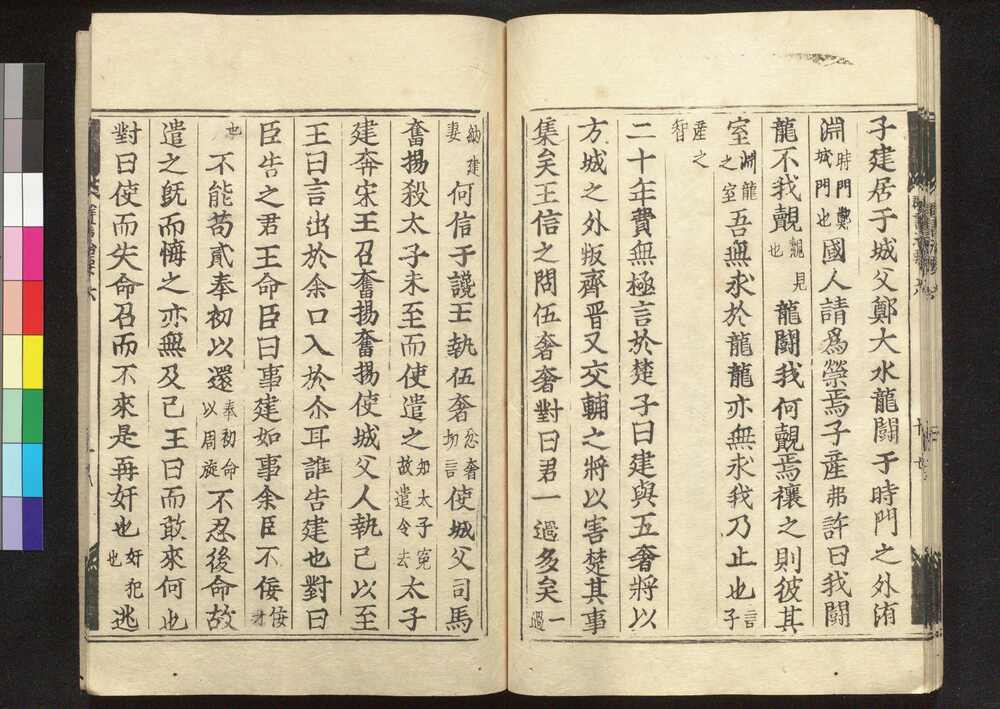 子建居于城父鄭大水龍鬬于時門之外洧
淵時門鄭城門也國人請爲禜焉子產弗許曰我鬬
龍不我覿覿見也龍鬬我何覿焉禳之則彼其
室淵龍之室吾無求於龍龍亦無求我乃止也言子
產之智
二十年費無極言於楚子曰建與五奢將以
方城之外叛齊晉又交輔之將以害楚其事
集矣王信之問伍奢奢對曰君一過多矣一過
納建妻何信于讒王執伍奢忿奢切言使城父司馬
奮揚殺太子未至而使遣之知太子寃故遣令去太子
建奔宋王召奮揚奮揚使城父人執己以至
王曰言出於余口入於尒耳誰告建也對曰
臣告之君王命臣曰事建如事余臣不佞佞才
也不能苟貳奉初以還奉初命以周旋不忍後命故
遣之旣而悔之亦無及已王曰而敢來何也
對曰使而失命召而不來是再奸也奸犯也逃